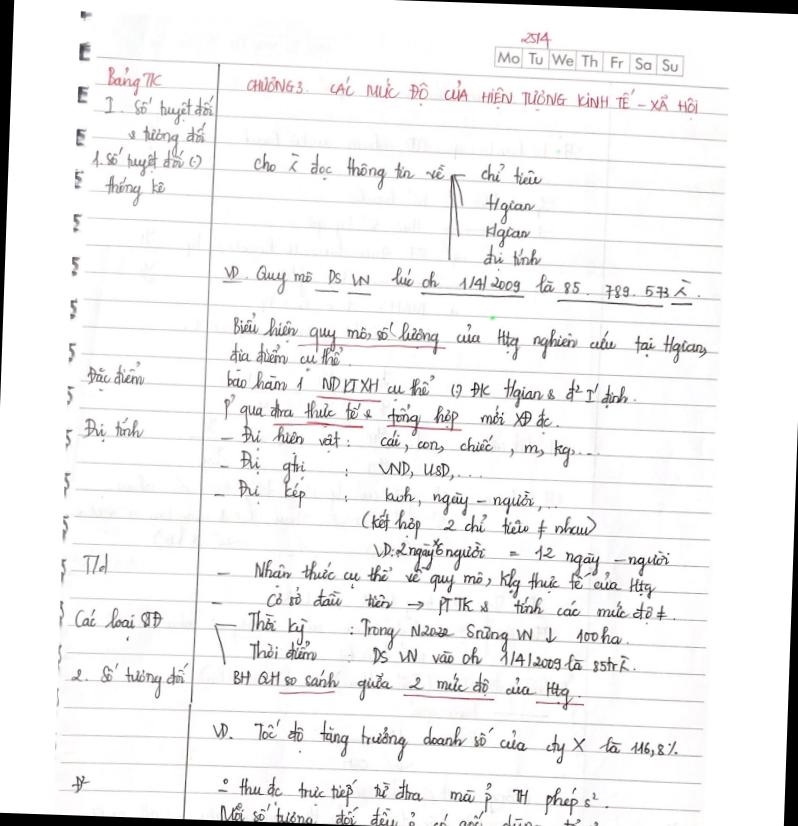 25/4
Mo Tu We Th Fr Sa Su
Bảng TK
CHƯƠNG 3. CÁC MỨC ĐỘ CỦA HIỆN TƯỢNG KINH TẾ - XÃ HỘI
I. Số tuyệt đối
& tương đối
1. Số tuyệt đối (-)
thống kê
cho đọc thông tin về
chỉ tiêu
tgian
đvị tính
VD. Quy mô DS VN lúc oh 1/4/2009 là 85.789.573
Biểu hiện quy mô, số lượng của Htg nghiên cứu tại tgian,
địa điểm cụ thể.
Đặc điểm
bao hàm 1 ND KTXH cụ thể (-) ĐK tgian & đ² I' định.
P' qua đtra thực tế & tổng hợp mới XĐ đc.
Đvị tính
- Đvị hiện vật : cái, con, chiếc, m, kg,...
- Đvị gtrị : VND, USD,...
- Đvị kép : kwh, ngày - người,...
(kết hợp 2 chỉ tiêu ≠ nhau)
VD: 2 ngày * 6 người = 12 ngày - người
T/d
- Nhận thức cụ thể về quy mô, klg thực tế của Htg
- Cơ sở đầu tiên → PTTK & tính các mức độ ≠.
Các loại STĐ
Thời kỳ : Trong N2022 Srừng VN ↓ 100ha.
Thời điểm : DS VN vào oh 1/4/2009 là 85tr
2. Số tương đối
BH QH so sánh giữa 2 mức độ của Htg.
VD. Tốc độ tăng trưởng doanh số của cty X là 116,8%
Đ²
thu đc trực tiếp từ đtra mà p' TH phép s².
Mỗi số tương đối đều